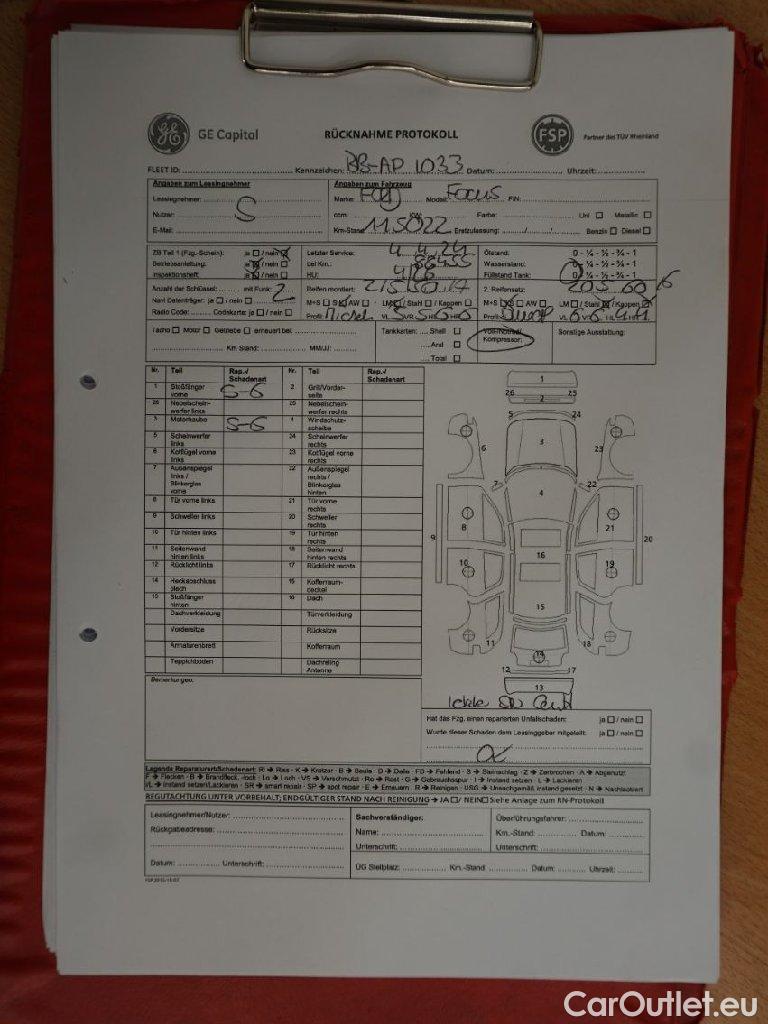 GE Capital
RÜCKNAHME PROTOKOLL
FSP
Partner des TÜV Rheinland
FLEET ID: Kennzeichen: BB-AP 1033 Datum: Uhrzeit:
Angaben zum Leasingnehmer
Angaben zum Fahrzeug
Leasingnehmer:
Name: Ford Modell: Focus FIN:
Nutzer: S
ccm KW Farbe: Uni ☐ Metallic ☐
E-Mail:
Km-Stand 115022 Erstzulassung: Benzin ☐ Diesel ☐
ZB Teil 1 (Fzg.-Schein): ja ☐ / nein ☒
Letzter Service: 4.4.24
Ölstand: 0 - ¼ - ½ - ¾ - 1
Betriebsanleitung: ja ☒ / nein ☐
bei Km:
Wasserstand: 0 - ¼ - ½ - ¾ - 1
Inspektionsheft: ja ☒ / nein ☐
HU:
Füllstand Tank: 0 - ¼ - ½ - ¾ - 1
Anzahl der Schlüssel: mit Funk: 2
Reifen montiert: 215 50 17
2. Reifensatz: 205 60 16
Navi Datenträger: ja ☐ / nein ☐
M+S ☐ AW ☐ LM / Stahl ☐ / Kappen ☐
M+S AW ☐ LM ☐ / Stahl / Kappen
Radio Code: Codekarte: ja ☐ / nein ☐
Profil:
Profil:
Tacho ☐ Motor ☐ Getriebe ☐ erneuert bei
Tankkarten: Shell ☐
Voll-/Notrad/
Kompressor:
Sonstige Ausstattung:
Aral ☐
Km Stand: MM/JJ:
Total ☐
Nr. Teil Rep./ Schadenart Nr. Teil Rep./ Schadenart
1 Stoßfänger vorne S-6 2 Grill/Vorderseite
26 Nebelscheinwerfer links 25 Nebelscheinwerfer rechts
3 Motorhaube S-6 4 Windschutzscheibe
5 Scheinwerfer links 24 Scheinwerfer rechts
6 Kotflügel vorne links 23 Kotflügel vorne rechts
7 Außenspiegel links / Blinkerglas vorne 22 Außenspiegel rechts / Blinkerglas hinten
8 Tür vorne links 21 Tür vorne rechts
9 Schweller links 20 Schweller rechts
10 Tür hinten links 19 Tür hinten rechts
11 Seitenwand hinten links 18 Seitenwand hinten rechts
12 Rücklicht links 17 Rücklicht rechts
14 Heckabschlussblech 15 Kofferraumdeckel
13 Stoßfänger hinten 16 Dach
Dachverkleidung Türverkleidung
Vordersitze Rücksitze
Armaturenbrett Kofferraum
Teppichboden Dachreling Antenne
1
26 2 25
5 24
6 3 23
7 22
4
8 21
9 20
16
10 19
15
11 18
14
12 17
13
Bemerkungen:
Hat das Fzg. einen reparierten Unfallschaden: ja ☐ / nein ☐
Wurde dieser Schaden dem Leasinggeber mitgeteilt: ja ☐ / nein ☐
Legende Reparaturart/Schadenart: RI → Riss · K → Kratzer · B → Beule · D → Delle · FD → Fehlend · S → Steinschlag · Z → Zerbrochen · A → Abgenutzt
BEGUTACHTUNG UNTER VORBEHALT; ENDGÜLTIGER STAND NACH REINIGUNG → JA ☐ / NEIN ☐ Siehe Anlage zum RN-Protokoll
Leasingnehmer/Nutzer:
Sachverständiger:
Überführungsfahrer:
Rückgabeadresse:
Name:
Km.-Stand: Datum:
Unterschrift:
Unterschrift:
Datum: Unterschrift:
ÜG Stellplatz: Km.-Stand Datum: Uhrzeit:
CarOutlet.eu